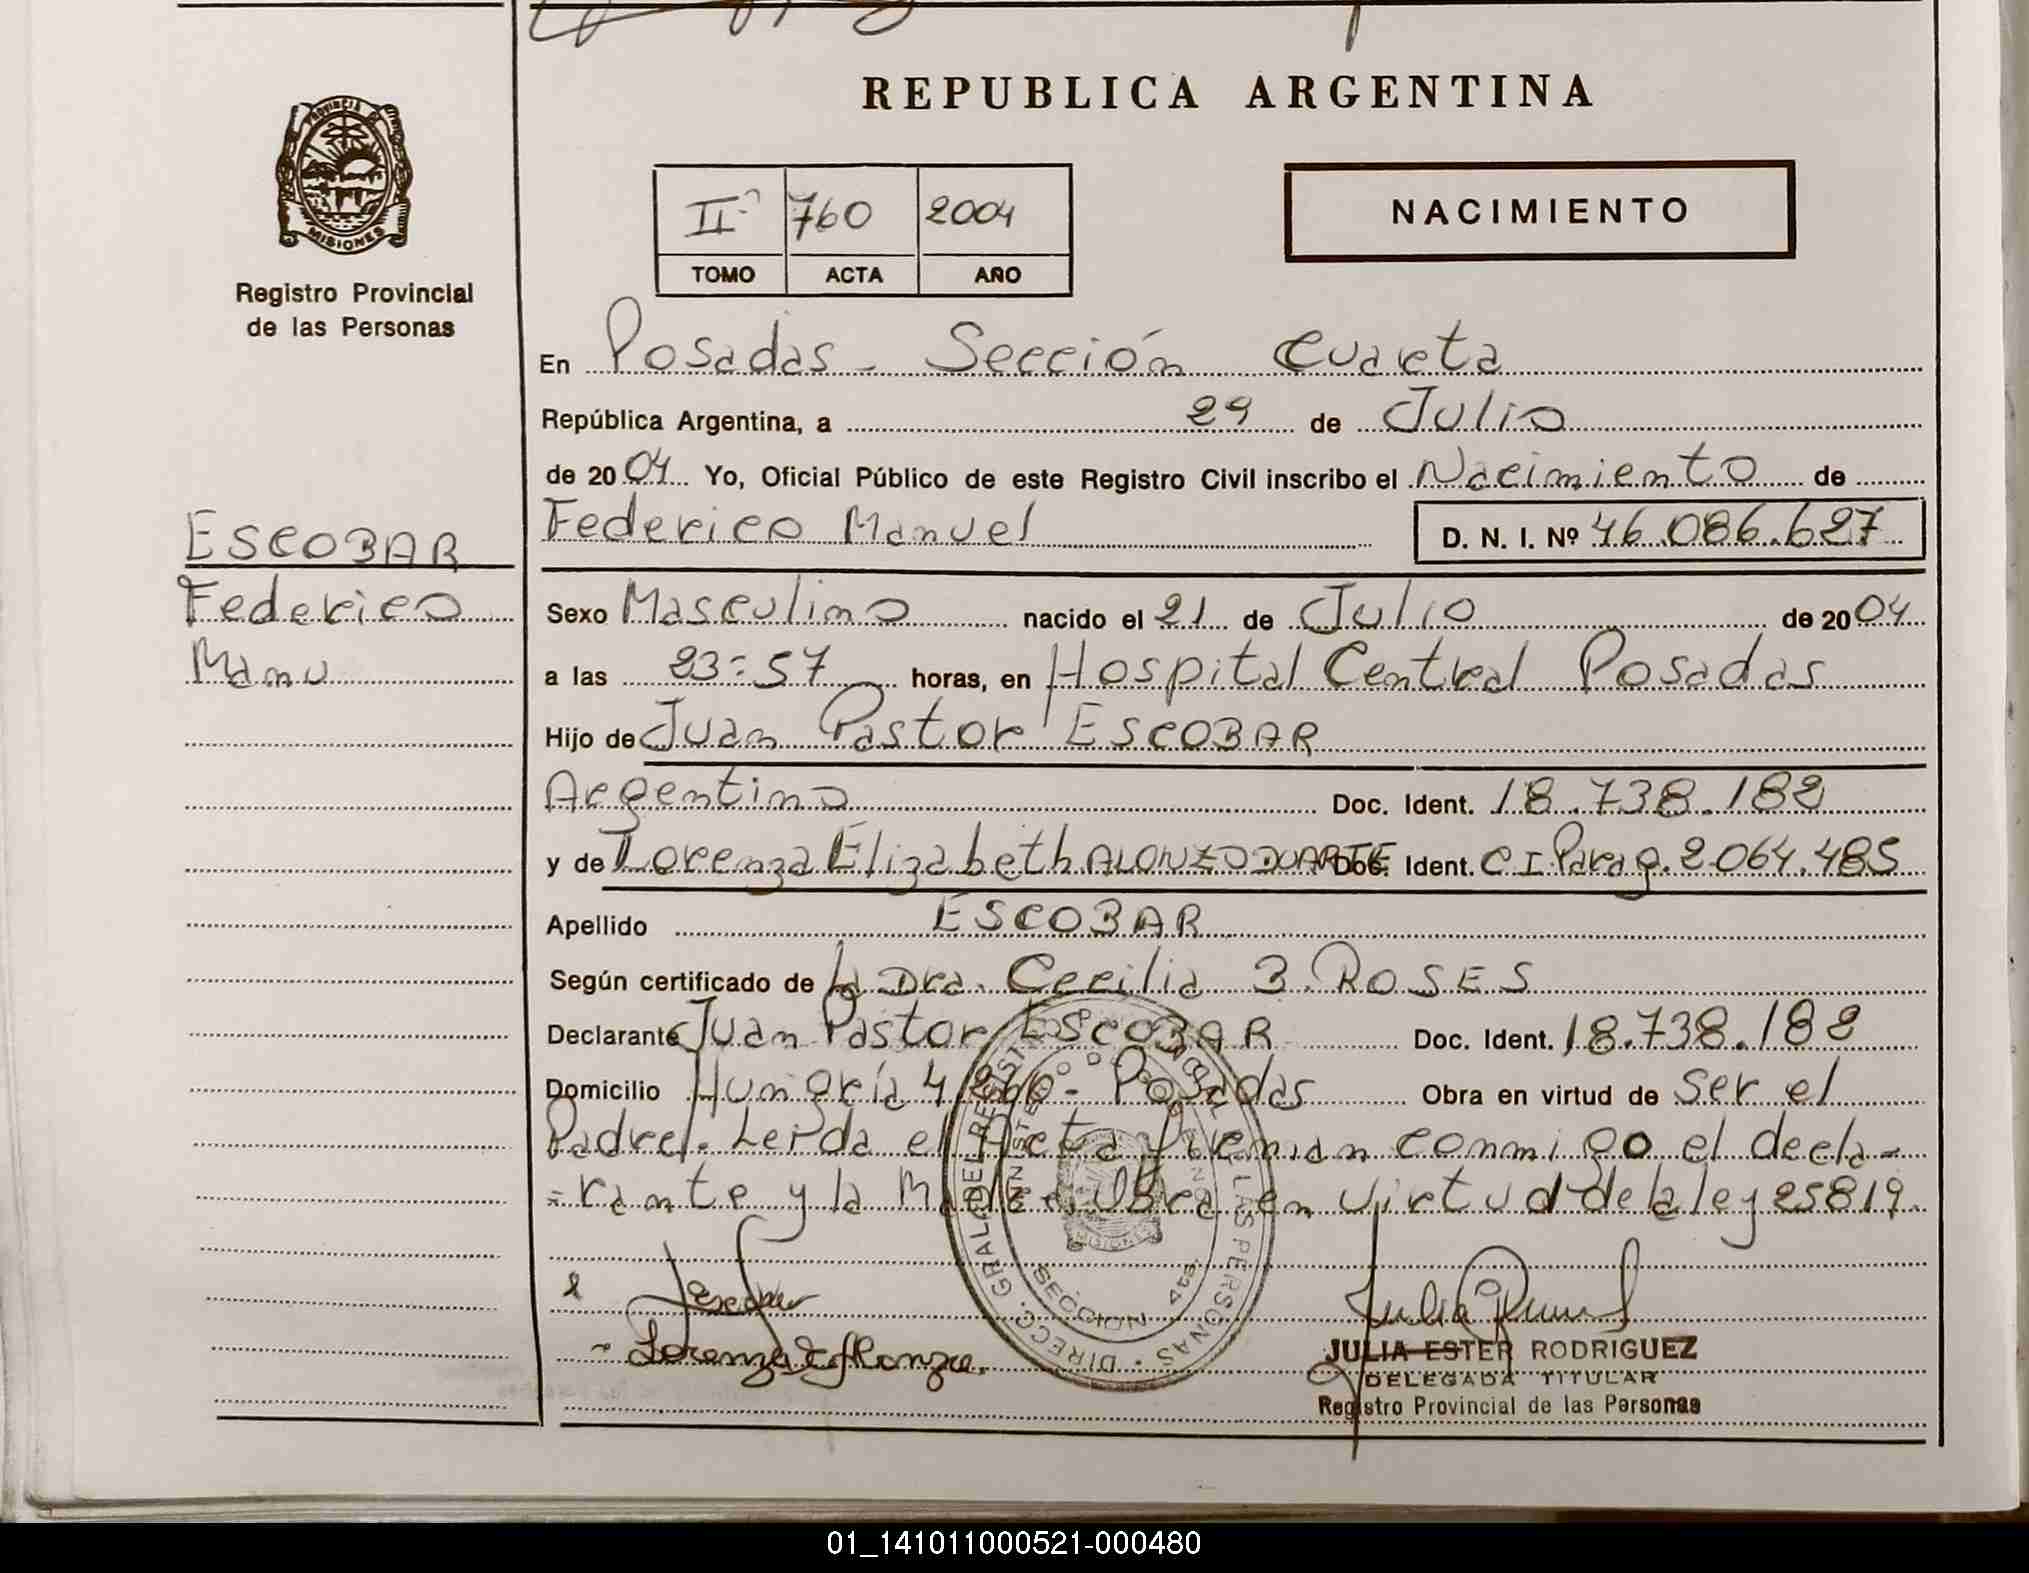 REPUBLICA ARGENTINA
PROVINCIA DE
MISIONES
Registro Provincial
de las Personas
IIº 760 2004
TOMO ACTA AÑO
NACIMIENTO
En Posadas - Sección Cuarta
República Argentina, a 29 de Julio
de 2004 Yo, Oficial Público de este Registro Civil inscribo el Nacimiento de
Federico Manuel D. N. I. Nº 46.086.627
ESCOBAR
Federico
Manu
Sexo Masculino nacido el 21 de Julio de 2004
a las 23:57 horas, en Hospital Central Posadas
Hijo de Juan Pastor ESCOBAR
Argentino Doc. Ident. 18.738.182
y de Lorenza Elizabeth ALONZO DUARTE Doc. Ident. C I Parag. 2064.485
Apellido ESCOBAR
Según certificado de la Dra. Cecilia B. ROSES
Declarante Juan Pastor ESCOBAR Doc. Ident. 18.738.182
Domicilio Hungría 4260 - Posadas Obra en virtud de ser el
Padre. Leída el Acta firman conmigo el decla=
=rante y la Madre. Obra en virtud de la ley 25819.
DIRECC. GRAL. DEL REGISTRO PROVINCIAL DE LAS PERSONAS
SECCION 4ta.
MISIONES
Lorenza E Alonzo.
JULIA ESTER RODRIGUEZ
DELEGADA TITULAR
Registro Provincial de las Personas
01_141011000521-000480